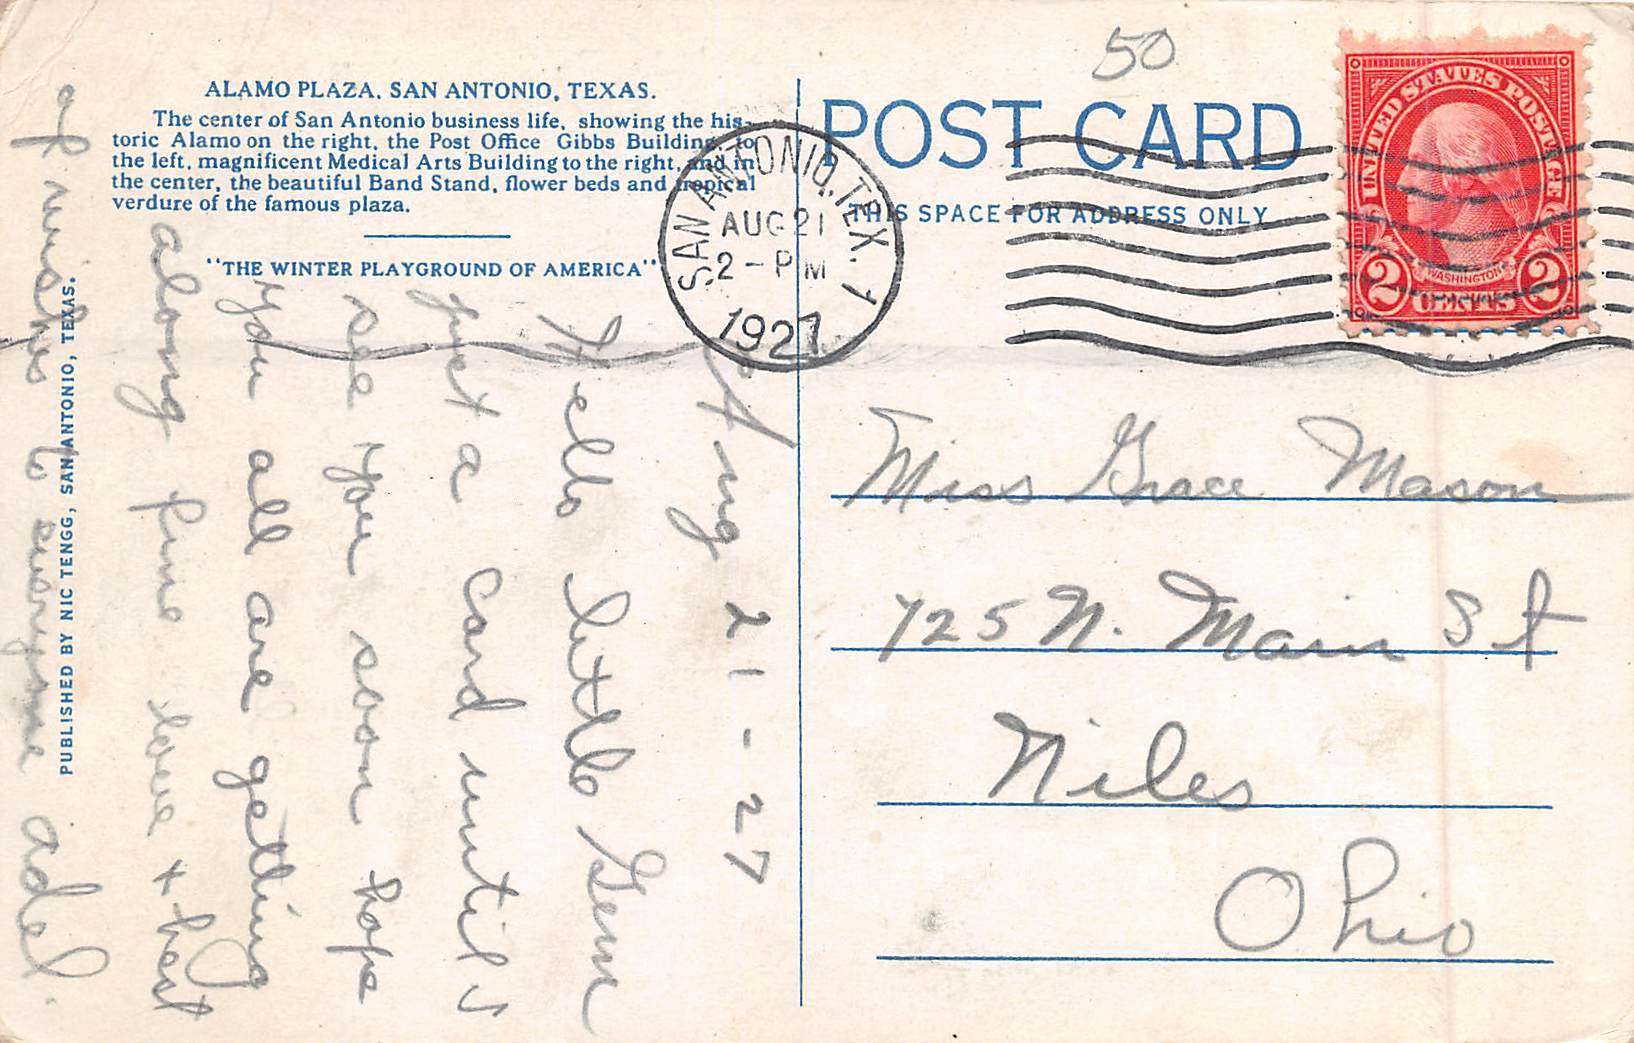 50
ALAMO PLAZA, SAN ANTONIO, TEXAS.
The center of San Antonio business life, showing the his-
toric Alamo on the right, the Post Office Gibbs Building, to
the left, magnificent Medical Arts Building to the right, and in
the center, the beautiful Band Stand, flower beds and tropical
verdure of the famous plaza.
"THE WINTER PLAYGROUND OF AMERICA"
PUBLISHED BY NIC TENGG, SAN ANTONIO, TEXAS.
POST CARD
THIS SPACE FOR ADDRESS ONLY
SAN ANTONIO, TEX. 1
AUG 21
2 - PM
1927
UNITED STATES POSTAGE
WASHINGTON
2 CENTS 2
Aug 21 - 27
Hello little Gem
just a card until I
see you soon hope
you all are getting
along fine love + best
of wishes to everyone adel.
Miss Grace Mason
725 N. Main St
Niles
Ohio